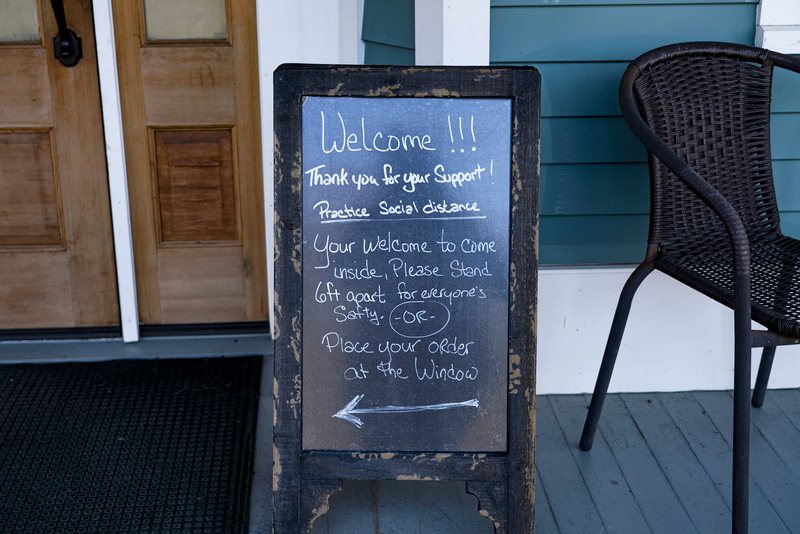 Welcome !!!
Thank you for your Support!
Practice Social distance
Your Welcome to come
inside, Please Stand
6ft apart for everyone's
Safty. -OR-
Place your order
at the Window